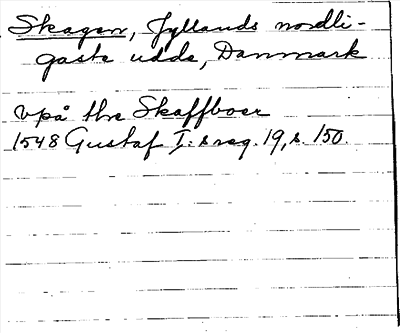 Skagen, Jyllands nordli-
gaste udde, Danmark
vpå thre Skaffboer
1548 Gustaf I:s reg. 19, s. 150.